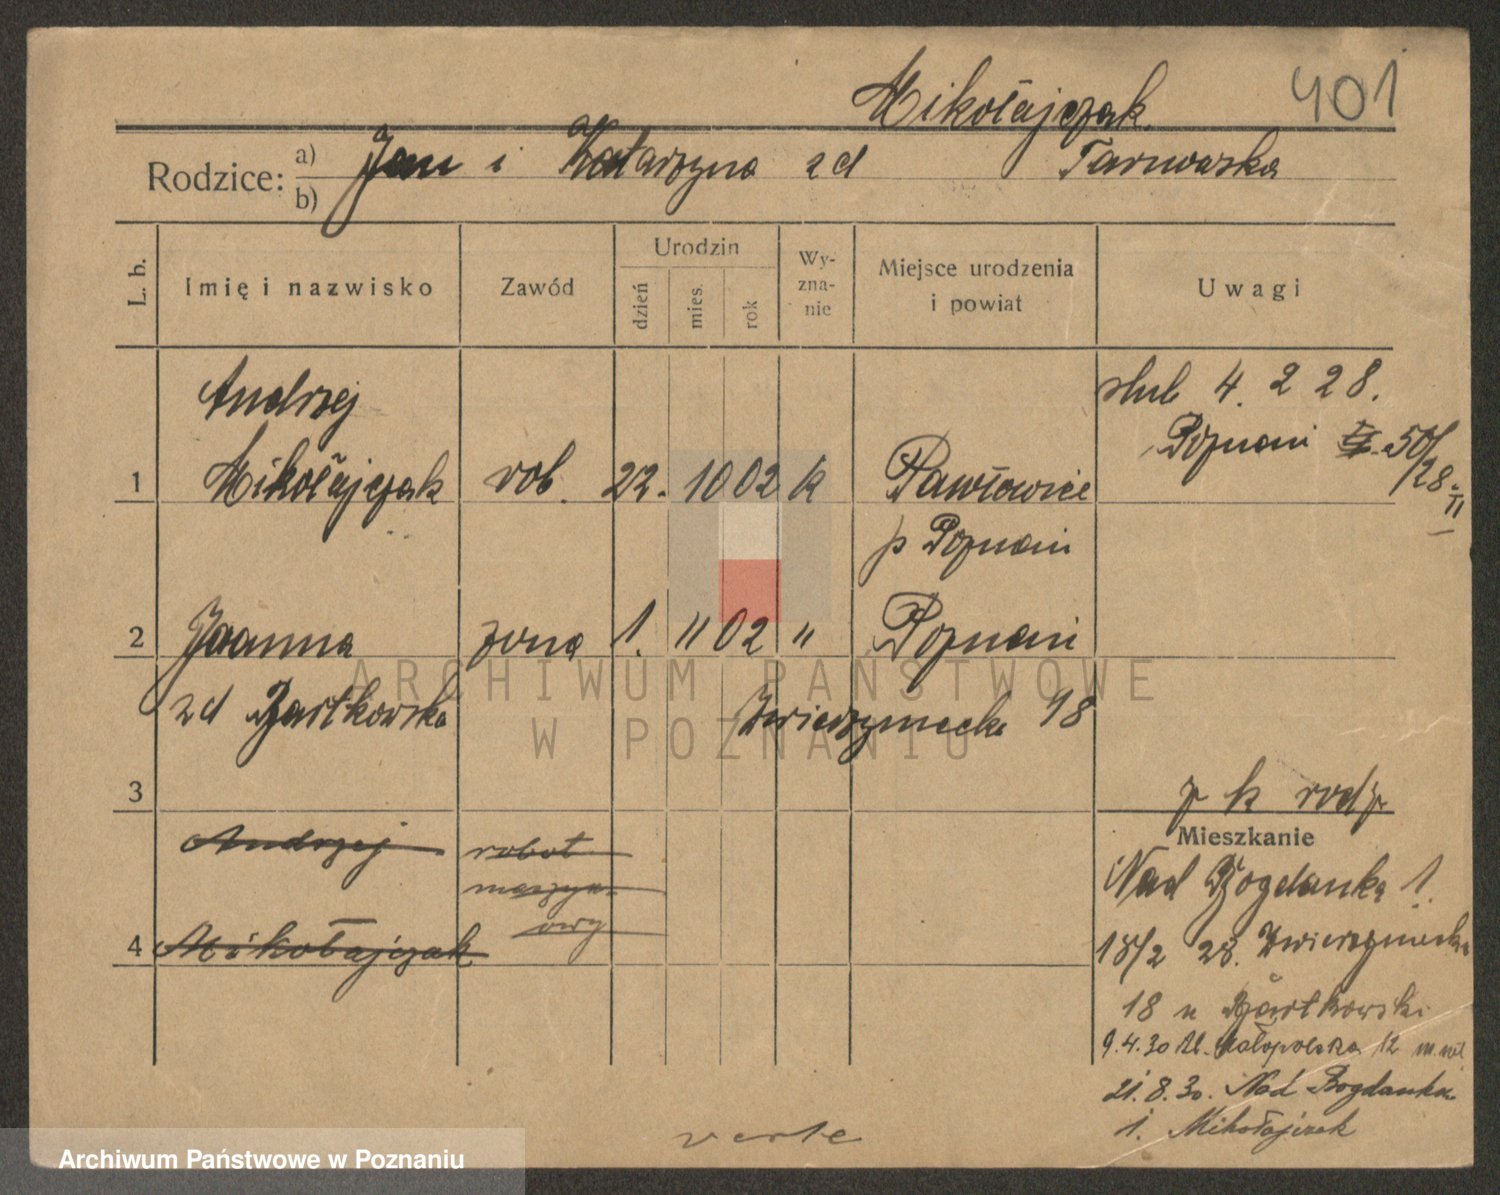 Mikołajczak 401
Rodzice: a) Jan i Katarzyna zd Tarnowska
b)
L. b. Imię i nazwisko Zawód Urodzin dzień mies. rok Wy-zna-nie Miejsce urodzenia i powiat Uwagi
Andrzej ślub 4. 2 28.
Poznań 50/28 II
1 Mikołajczak rob. 22. 10 02 k Pawłowice
p Poznań
2 Joanna żona 1. " 02 " Poznań
zd Bartkowska Zwierzyniecka 18
3 p k rodz
Mieszkanie
Andrzej robot
maszyn
owy
Nad Bogdanką 1.
4 Mikołajczak
18/2 28. Zwierzyniecka
18 u Bartkowski
9.4.30 Ul. Małopolska 12
21.8.30. Nad Bogdanką
1. Mikołajczak
verte
ARCHIWUM PAŃSTWOWE
W POZNANIU
Archiwum Państwowe w Poznaniu